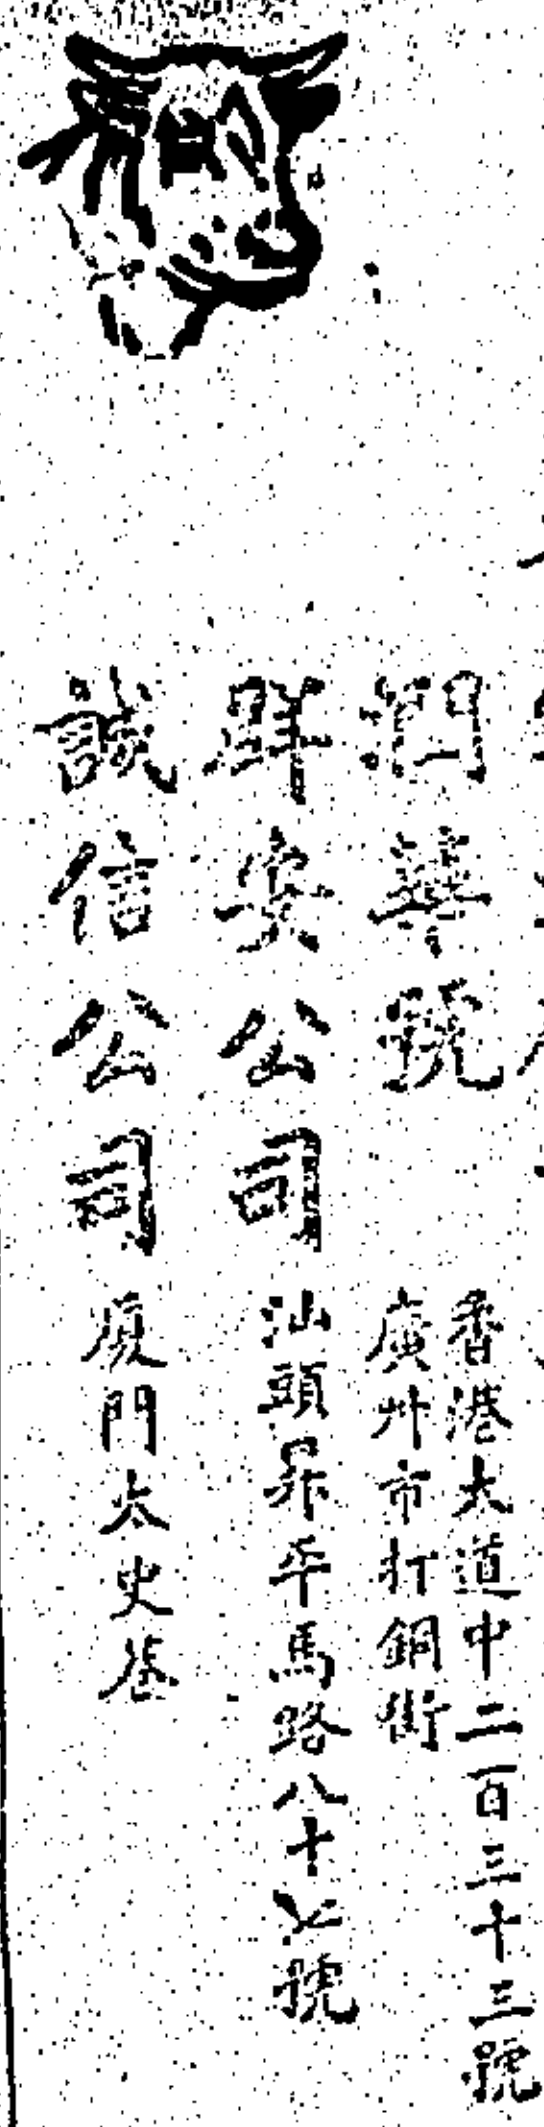 潤華號
香港大道中二百三十三號
廣州市打銅街
群安公司
汕頭昇平馬路八十七號
誠信公司
廈門太史巷